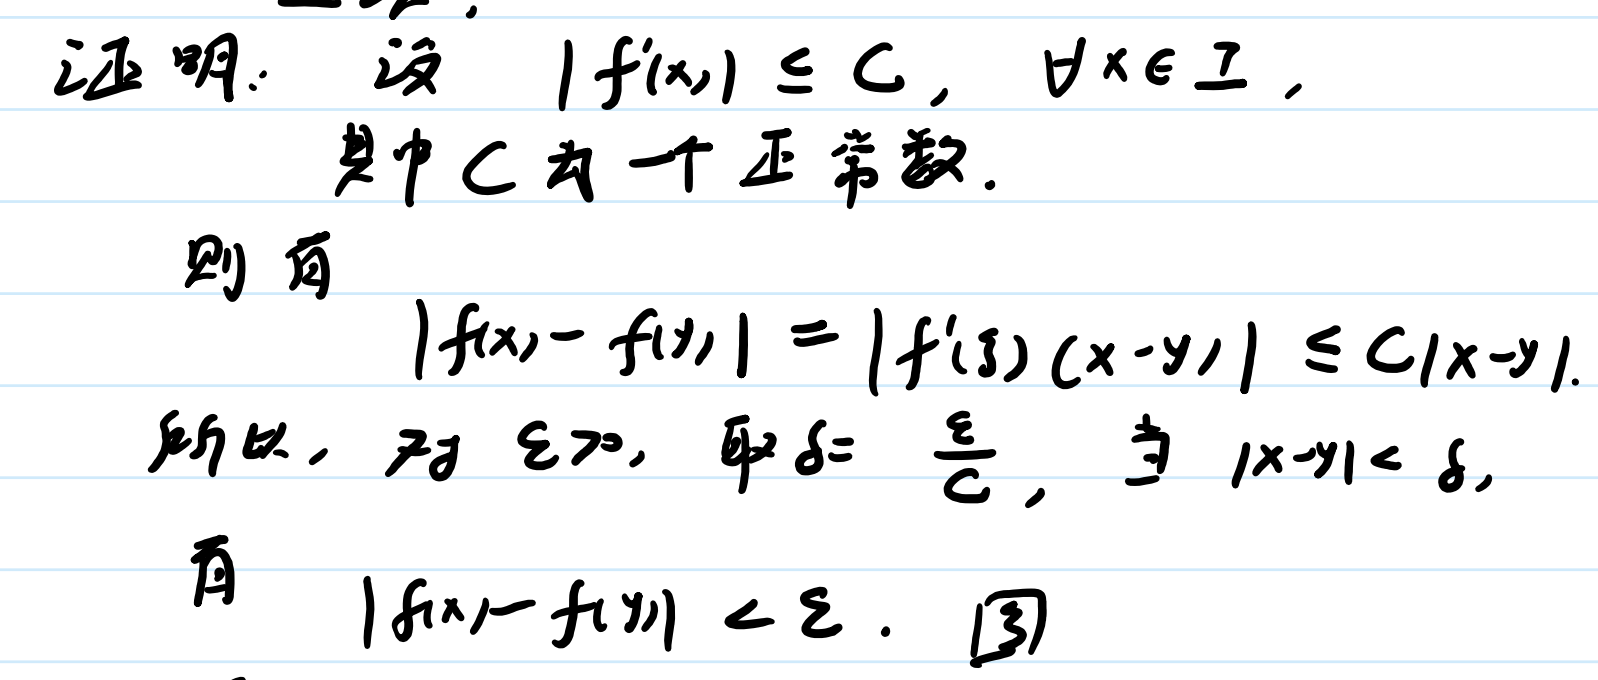 证明: 设 |f'(x)| ≤ C, ∀x∈I,
其中C为一个正常数.
则有
|f(x)-f(y)| = |f'(ξ)(x-y)| ≤ C|x-y|.
所以, 对 ε>0, 取δ= ε/C, 当 |x-y|< δ,
有
|f(x)-f(y)| < ε.